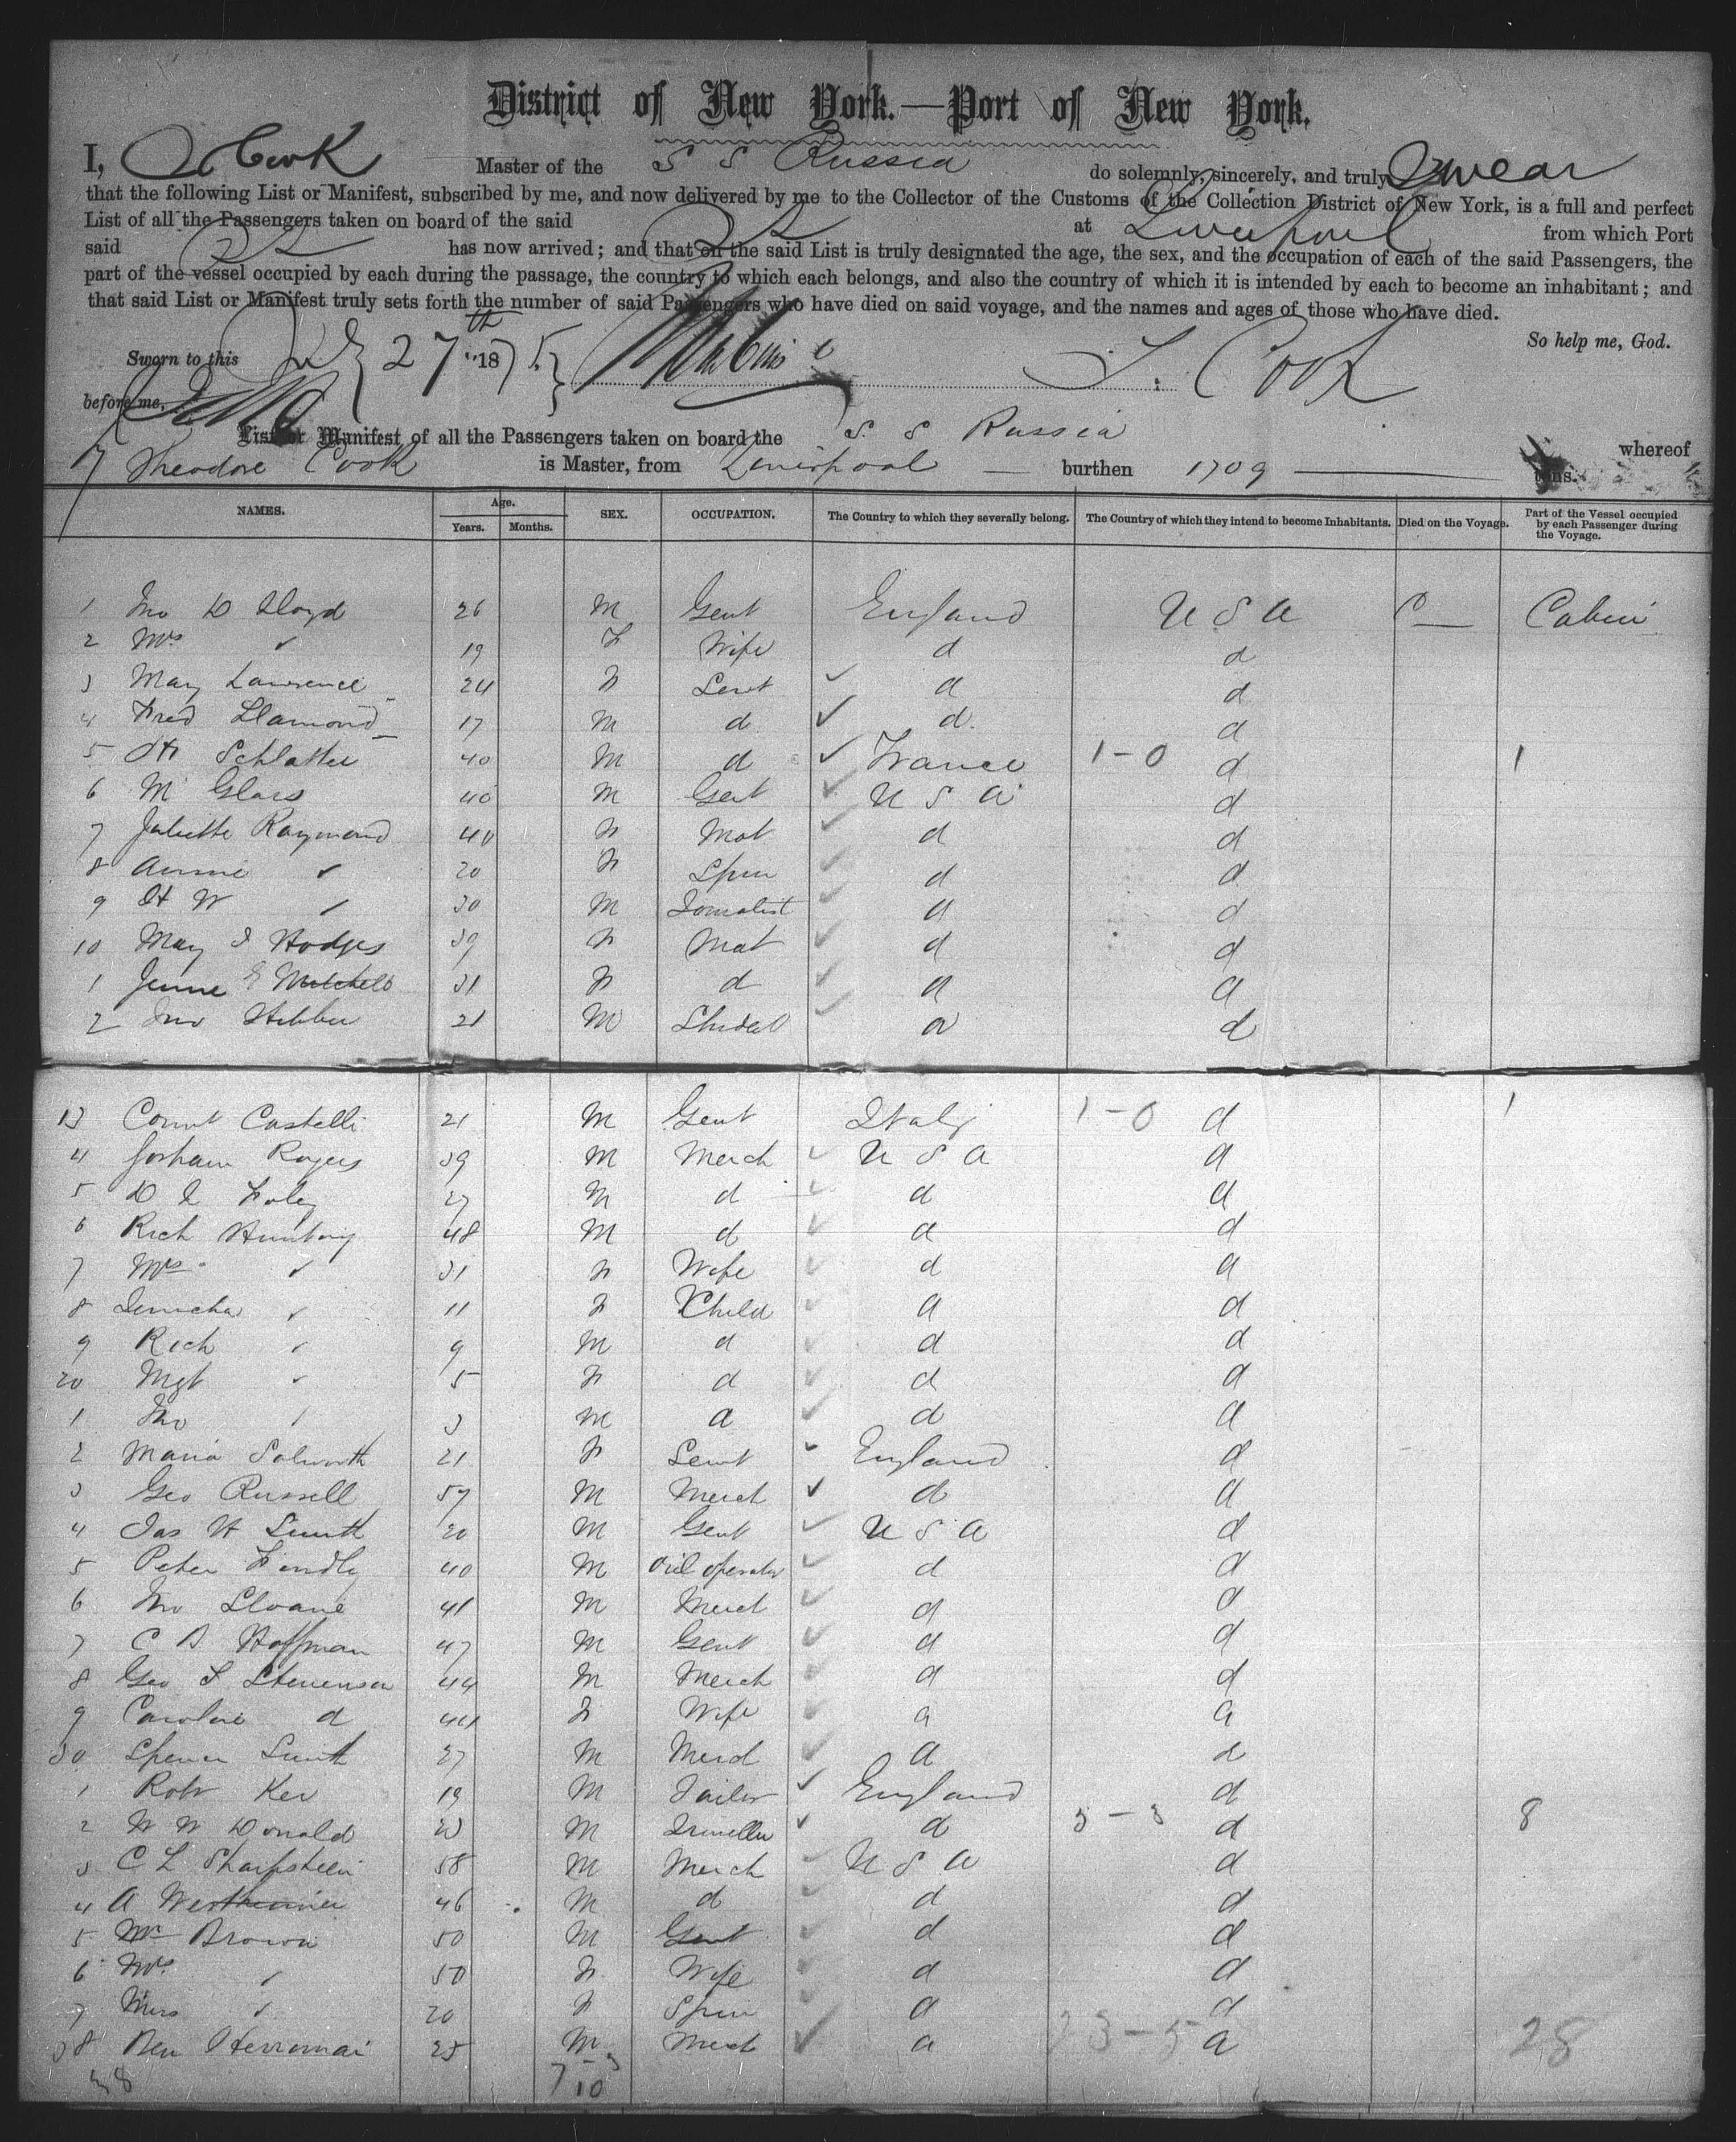 District of New York.—Port of New York.
I, T Cook Master of the S S Russia do solemnly, sincerely, and truly Swear
that the following List or Manifest, subscribed by me, and now delivered by me to the Collector of the Customs of the Collection District of New York, is a full and perfect
List of all the Passengers taken on board of the said at Liverpool from which Port
said has now arrived; and that on the said List is truly designated the age, the sex, and the occupation of each of the said Passengers, the
part of the vessel occupied by each during the passage, the country to which each belongs, and also the country of which it is intended by each to become an inhabitant; and
that said List or Manifest truly sets forth the number of said Passengers who have died on said voyage, and the names and ages of those who have died.
So help me, God.
Sworn to this 27th 1875 T. Cook
before me,
List or Manifest of all the Passengers taken on board the S. S Russia whereof
Theodore Cook is Master, from Liverpool — burthen 1709 — tons.
NAMES. Age. Years. Months. SEX. OCCUPATION. The Country to which they severally belong. The Country of which they intend to become Inhabitants. Died on the Voyage. Part of the Vessel occupied by each Passenger during the Voyage.
1 Jno D Lloyd 26 M Gent England U S A Cabin
2 Mrs " 19 F Wife d d
3 Mary Lawrence 24 F Servt d d
4 Fred Hamond 17 M d d d
5 H Schlatter 40 M d France 1-0 d 1
6 M Glass 40 M Gent U S A d
7 Juliette Raymond 40 F Mat d d
8 Annie " 20 F Spin d d
9 H W " 30 M Journalist d d
10 Mary J Hodges 39 F Mat d d
1 Jennie E Mitchell 31 F d d d
2 Jno Hibber 21 M Student d d
13 Count Castelli 21 M Gent Italy 1-0 d 1
4 Gorham Rogers 39 M Merch U S A d
5 D I Foley 27 M d d d
6 Rich Hunting 48 M d d d
7 Mrs " 31 F Wife d d
8 " 11 F Child d d
9 Rich " 9 M d d d
20 Mgt " 5 F d d d
1 Jno " 3 M d d d
2 Maria Solworth 21 F Servt England d
3 Geo Russell 57 M Merch d d
4 Jas H Smith 20 M Gent U S A d
5 Peter Findly 40 M Oil operator d d
6 Jno Sloane 41 M Merch d d
7 C B Hoffman 47 M Gent d d
8 Geo S Stevenson 44 M Merch d d
9 Caroline d 44 F Wife d d
30 Spencer Smith 27 M Merch d d
1 Robt Ker 19 M Sailor England d
2 W W Donald 23 M Traveller d 5-3 d 8
3 C L Sharpstein 58 M Merch U S A d
4 A Wertheimer 46 M d d d
5 Mr Brown 50 M Gent d d
6 Mrs " 50 F Wife d d
7 Miss " 20 F Spin d d
38 Ben Herroman 25 M Merch d 23-5 d 28
38 7 10 3